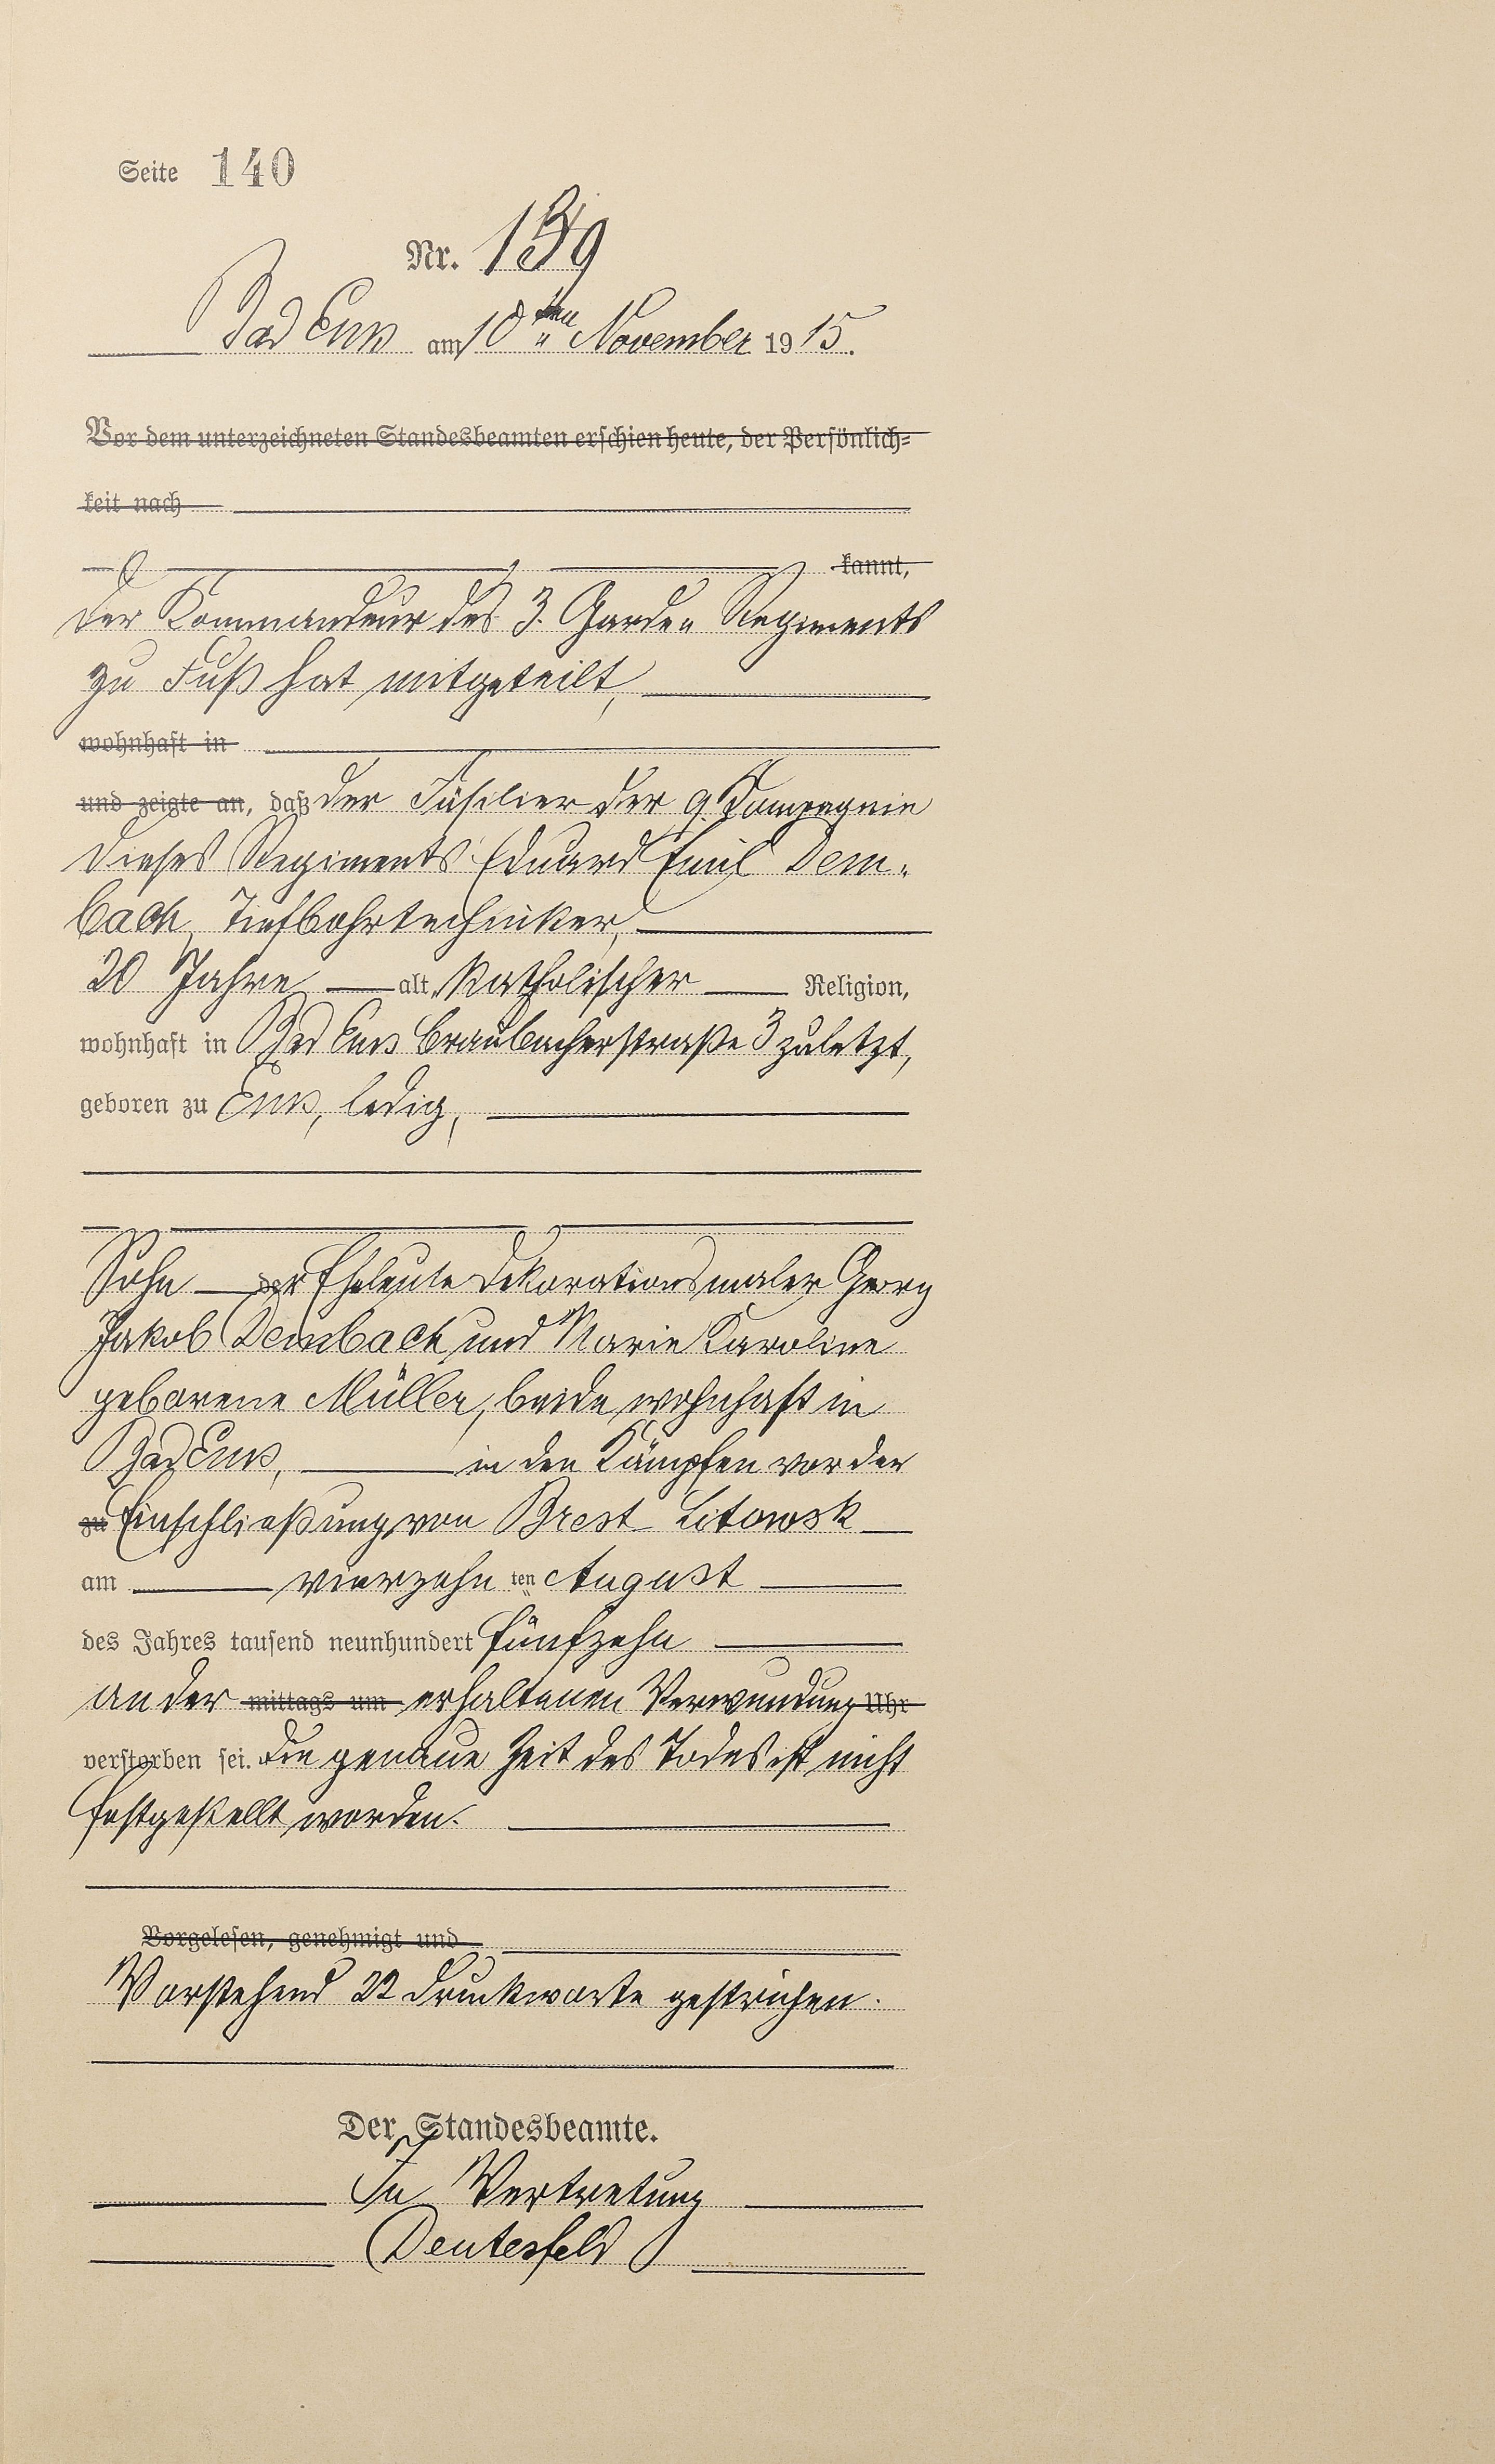 Seite 140
Nr. 139
Bad Ems am 10ten November 1915.
Vor dem unterzeichneten Standesbeamten erschien heute, der Persönlich=
keit nach
kannt,
der Kommandeur des 3. Garde= Regiments
zu Fuß hat mitgeteilt,
wohnhaft in
und zeigte an, daß der Füsilier der 9. Kompagnie
dieses Regiments Eduard Emil Dem=
bach, Tiefbohrtechniker,
20 Jahre alt, katholischer Religion,
wohnhaft in Bad Ems Braubacherstraße 3 zuletzt,
geboren zu Ems, ledig,
Sohn der Eheleute Dekorationsmaler Georg
Jakob Dembach und Marie Karoline
geborene Müller, beide wohnhaft in
Bad Ems, in den Kämpfen vor der
zu Einschließung von Brest Litowsk
am vierzehnten August
des Jahres tausend neunhundert fünfzehn
an der mittags um erhaltenen Verwundung Uhr
verstorben sei. Die genaue Zeit des Todes ist nicht
festgestellt worden.
Vorgelesen, genehmigt und
Vorstehend 22 Druckworte gestrichen.
Der Standesbeamte.
In Vertretung
Deutesfeld